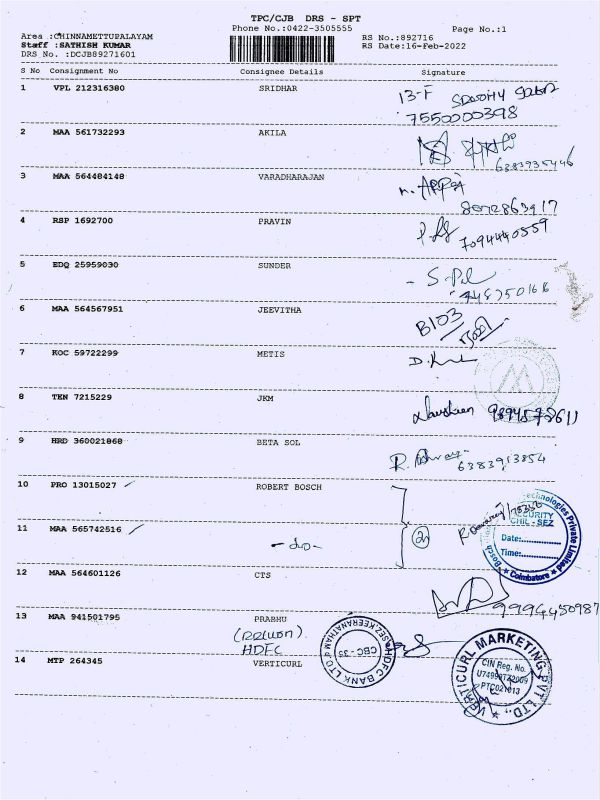 TPC/CJB DRS - SPT
Area :CHINNAMETTUPALAYAM Phone No.:0422-3505555 Page No.:1
Staff :SATHISH KUMAR RS No.:892716
DRS No. :DCJB89271601 RS Date:16-Feb-2022
S No Consignment No Consignee Details Signature
1 VPL 212316380 SRIDHAR 13-F
7550000398
2 MAA 561732293 AKILA
6383935446
3 MAA 564484148 VARADHARAJAN
8072863917
4 RSP 1692700 PRAVIN 7094440559
5 EDQ 25959030 SUNDER
6 MAA 564567951 JEEVITHA B103
7 KOC 59722299 METIS
8 TEN 7215229 JKM
9 HRD 360021868 BETA SOL
6383913854
10 PRO 13015027 ROBERT BOSCH
11 MAA 565742516 - do - 2
Technologies Private Limited
SECURITY
CHIL - SEZ
Date:
Time:
Bosch
Coimbatore
12 MAA 564601126 CTS
9994450987
13 MAA 941501795 PRABHU
HDFC
HDFC BANK LTD
CBC - 35
SEZ KEERANATHAM
14 MTP 264345 VERTICURL
VERTICURL MARKETING PVT LTD.,
CIN Reg. No.